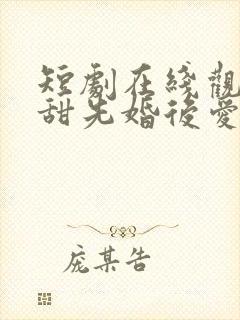 短劇在綫觀
甜先婚後愛
庞某告